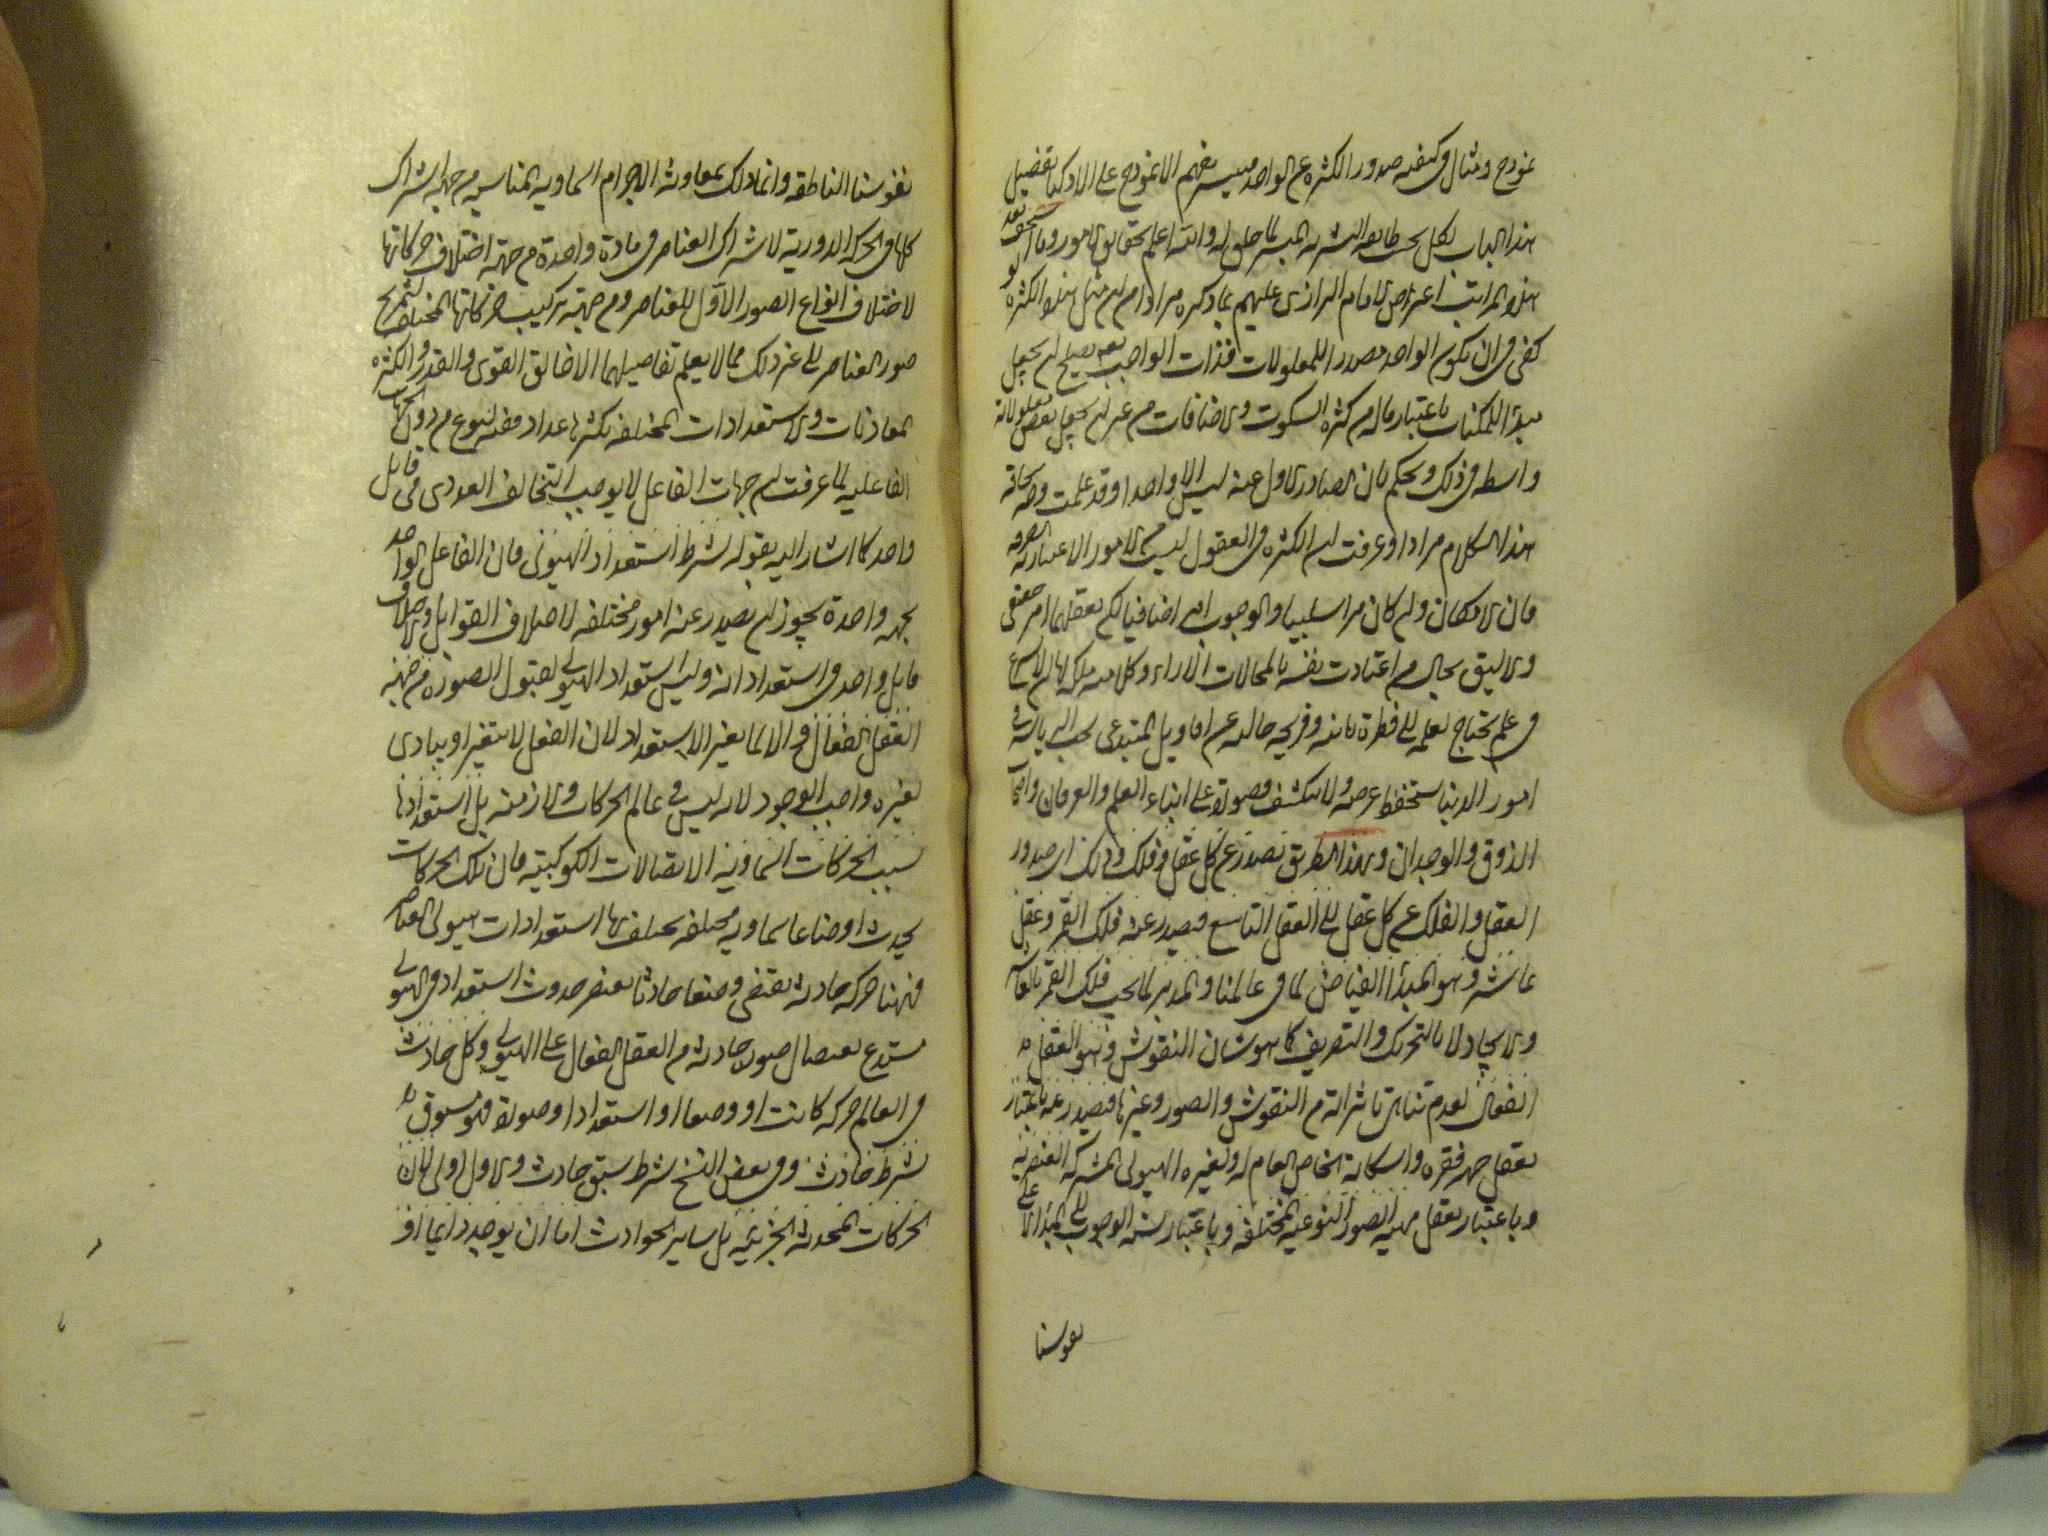 نموذج ومثال وكيفيه صدور الكثره عن الواحد فهم الانموذج على الاذكيا تفصيل
هذا الباب لكل بحسب طاقته البشريه لما خلق له والله اعلم بحقايق الامور وما
هذه المراتب اعتراض الامام الرازى عليهم بما ذكره مرارا من ان مثل هذه الكثره لو
كفى فى ان يكون الواحد مصدرا للمعلولات فذات الواجب تعالى يصلح ان يجعل
مبدأ للممكنات باعتبار ماله من كثره السلوب والاضافات من غير ان يجعل بعض معلولاته
واسطه فى ذلك ويحكم بان الصادر الاول عنه ليس الا واحدا وقد علمت وجه سخافه
هذا الكلام مرارا وعرفت ان الكثره فى العقول ليست من الامور الاعتباريه الصرفه
فان الامكان وان كان امرا سلبيا والوجوب امرا اضافيا لكن تعقلهما امر حقيقى
ولا يليق بحال من اعتادت نفسه بالمجالات الاراء وكلامه
فى علم يحتاج تعلمه الى فطره ثانيه وقريحه خاليه عن اقاويل المبتدعين بحسب الرياسه فى
امور الدنيا ستحفظ عرضه ولا تنكشف على ابناء العلم والعرفان واصحاب
الذوق والوجدان وبهذا الطريق تصدر عن كل عقل وفلك وذلك اى صدور
العقل والفلك عن كل عقل الى العقل التاسع فيصدر عنه فلك القمر وعقل
عاشر وهو المبدأ الفياض لما فى عالمنا والمدبر لما تحت فلك القمر بالافاضه
والايجاد لا بالتحريك والتصريف كما هو شان النفوس وهو العقل
الفعال لعدم تناهى تاثيراته من النفوس والصور وغيرها فيصدر عنه باعتبار
تعقل جهه فقره وامكانه الخاص العام له ولغيره الهيولى المشتركه العنصريه
وباعتبار تعقل مهيه الصور النوعيه المختلفه وباعتبار نسبه الوجوب الى المبدا الاعلى
نفوسنا
نفوسنا الناطقه وانما ذلك بمعاونه الاجرام السماويه المناسبه من جهه اشتراك
كلها فى الحركه الدوريه لاشتراك العناصر فى ماده واحدة من جهه اختلاف حركاتها
لاختلاف انواع الصور الاول للعناصر ومن جهه تركيب حركاتها المختلفه لتمزيج
صور العناصر الى غير ذلك مما لا يعلم تفاصيلها الا خالق القوى والقدر والكثره
المعاونات والاستعدادات المختلفه تكثر اعداد نوع من دون الجهات
الفاعليه لما عرفت ان جهات الفاعل لا يوجب التخالف العددى فى قابل
واحد كما اشار اليه بقوله بشرط استعداد الهيولى فان الفاعل الواحد
بجهه واحدة يجوز ان يصدر عنه امور مختلفه لاختلاف القوابل والاختلاف
قابل واحد فى استعداداته وليس استعداد الهيولى لقبول الصوره من جهه
العقل الفعال والا لما تغير الاستعداد لان العقل لا يتغير او مبادى
تغيره واجب الوجود لانه ليس فى عالم الحركات والازمنه بل استعدادها
بسبب الحركات السماويه الاتصالات الكوكبيه فان تلك الحركات
يحدث اوضاعا سماويه مختلفه يختلف بها استعدادات هيولى العناصر
فههنا حركه حادثه يقتضى وضعا حادثا يقتضى حدوث استعداد فى الهيولى
مستدع لفيضان صوره حادثه من العقل الفعال على الهيولى وكل حادث
فى العالم حركه كانت او وضعا او استعدادا او صوره فهو مسبوق
بشرط حادث وفى بعض النسخ شرط سبق حادث والاول اولى لان
الحركات المحدثه الجزئيه بل ساير الحوادث اما ان يوجد دايما او